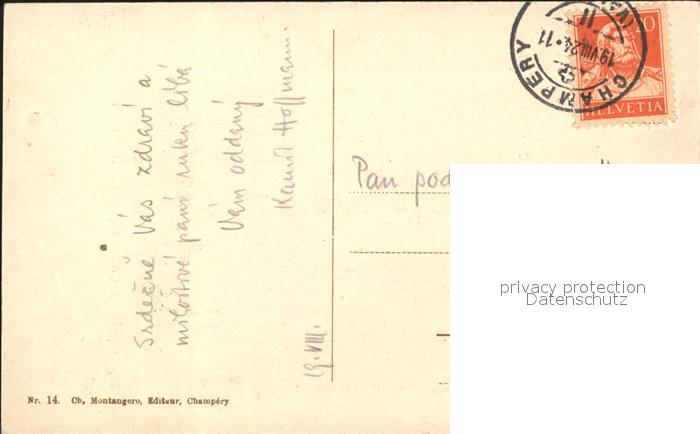 Srdečně Vás zdraví a
milostivé paní ruku líbá
Vám oddaný
Kamil Hoffmann.
19.VIII.
Pan pod
CHAMPÉRY
19.VIII.24·11
II
20
HELVETIA
privacy protection
Datenschutz
Nr. 14. Ch, Montangero, Editeur, Champéry